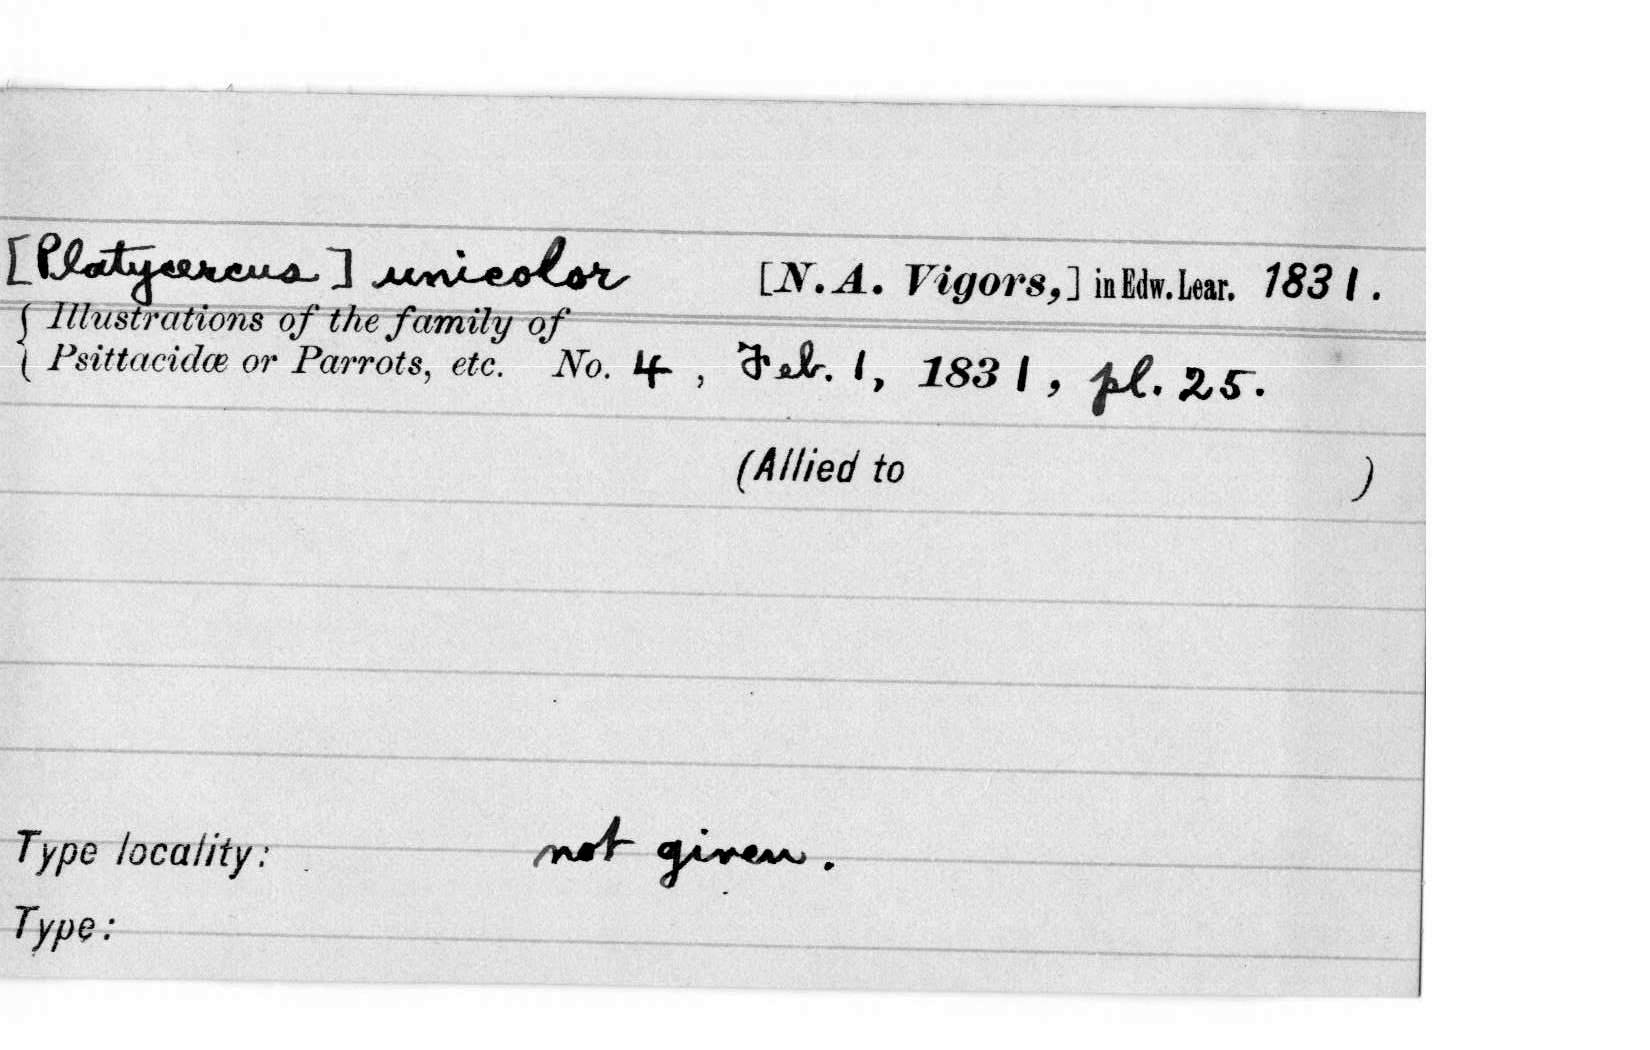 [Platycercus] unicolor [N. A. Vigors,] in Edw. Lear. 1831.
{ Illustrations of the family of
Psittacidæ or Parrots, etc. No. 4, Feb. 1, 1831, pl. 25.
(Allied to )
Type locality: not given.
Type: